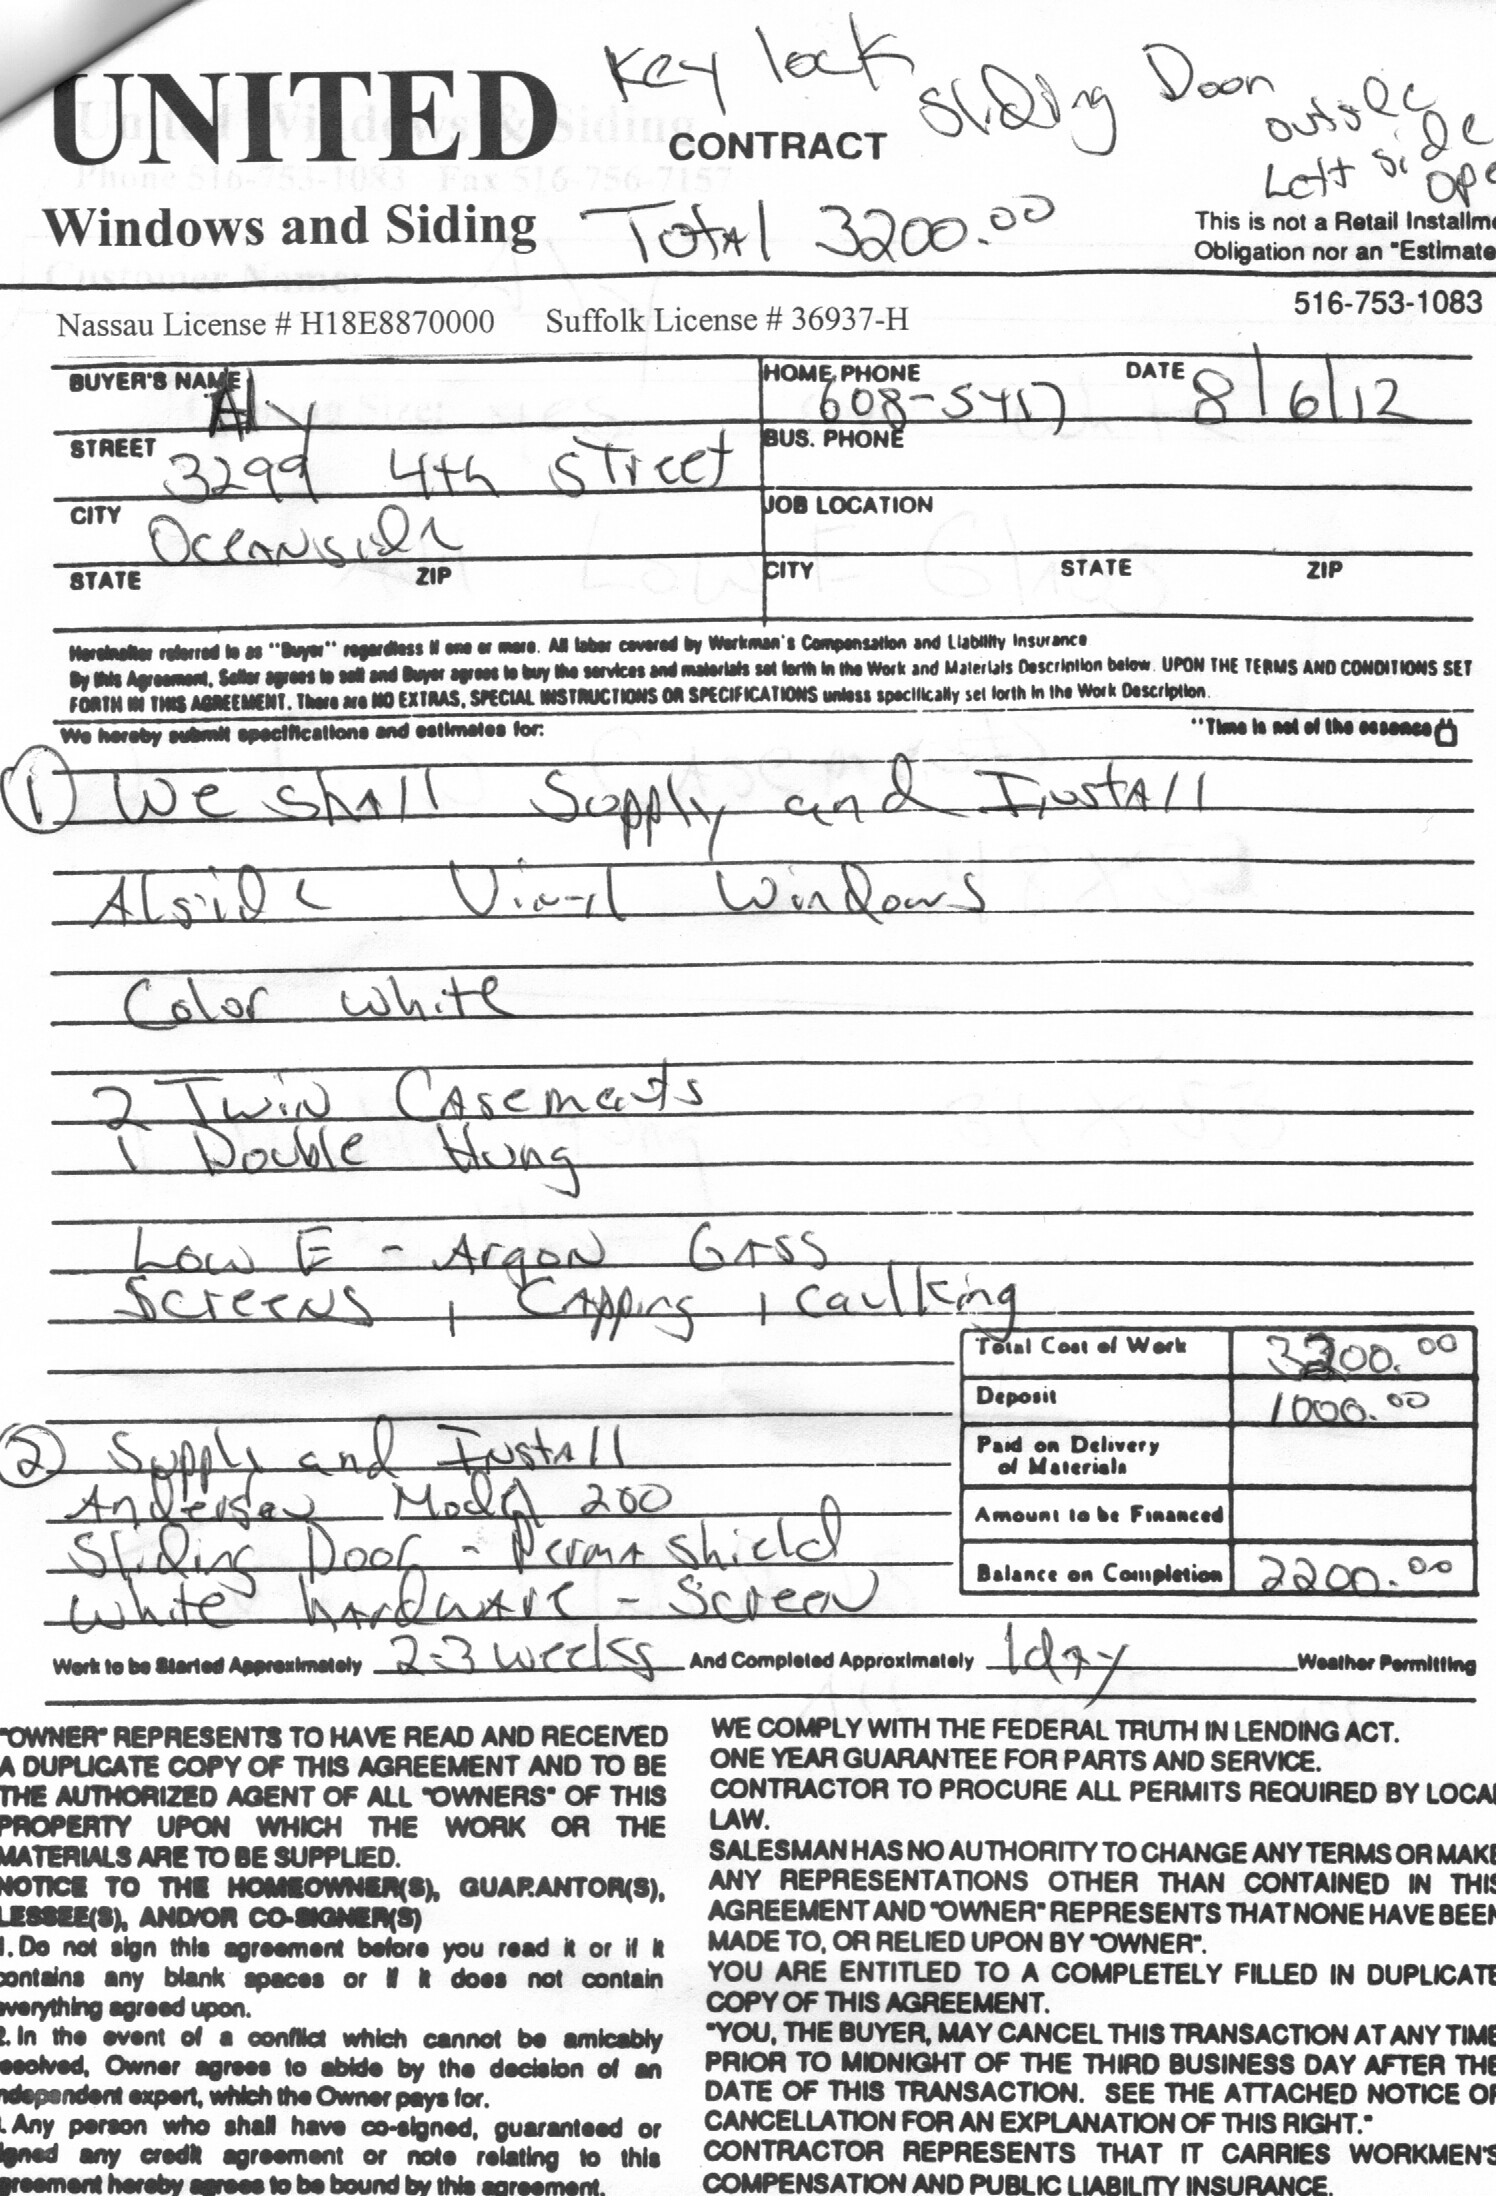 Key lock
Sliding Door
outside
Left side
ope
UNITED
CONTRACT
Windows and Siding
Total 3200.00
This is not a Retail Installme
Obligation nor an "Estimate
516-753-1083
Nassau License # H18E8870000 Suffolk License # 36937-H
BUYER'S NAME Aly HOME PHONE 608-5417 DATE 8/6/12
STREET 3299 4th Street BUS. PHONE
CITY Oceanside JOB LOCATION
STATE ZIP CITY STATE ZIP
Hereinafter referred to as "Buyer" regardless if one or more. All labor covered by Workman's Compensation and Liability Insurance
By this Agreement, Seller agrees to sell and Buyer agrees to buy the services and materials set forth in the Work and Materials Description below. UPON THE TERMS AND CONDITIONS SET
FORTH IN THIS AGREEMENT. There are NO EXTRAS, SPECIAL INSTRUCTIONS OR SPECIFICATIONS unless specifically set forth in the Work Description.
We hereby submit specifications and estimates for: "Time is not of the essence
1 We shall Supply and Install
Alside Vinyl Windows
Color White
2 Twin Casements
1 Double Hung
Low E - Argon Gass
Screens, Capping, caulking
Total Cost of Work 3200.00
Deposit 1000.00
Paid on Delivery
of Materials
Amount to be Financed
Balance on Completion 2200.00
2 Supply and Install
Andersen Model 200
Sliding Door - Perma shield
White hardware - Screen
Work to be Started Approximately 2-3 weeks And Completed Approximately 1 day Weather Permitting
"OWNER" REPRESENTS TO HAVE READ AND RECEIVED
A DUPLICATE COPY OF THIS AGREEMENT AND TO BE
THE AUTHORIZED AGENT OF ALL "OWNERS" OF THIS
PROPERTY UPON WHICH THE WORK OR THE
MATERIALS ARE TO BE SUPPLIED.
NOTICE TO THE HOMEOWNER(S), GUARANTOR(S),
LESSEE(S), AND/OR CO-SIGNER(S)
1. Do not sign this agreement before you read it or if it
contains any blank spaces or if it does not contain
everything agreed upon.
2. In the event of a conflict which cannot be amicably
resolved, Owner agrees to abide by the decision of an
independent expert, which the Owner pays for.
. Any person who shall have co-signed, guaranteed or
igned any credit agreement or note relating to this
greement hereby agrees to be bound by this agreement.
WE COMPLY WITH THE FEDERAL TRUTH IN LENDING ACT.
ONE YEAR GUARANTEE FOR PARTS AND SERVICE.
CONTRACTOR TO PROCURE ALL PERMITS REQUIRED BY LOCAL
LAW.
SALESMAN HAS NO AUTHORITY TO CHANGE ANY TERMS OR MAKE
ANY REPRESENTATIONS OTHER THAN CONTAINED IN THIS
AGREEMENT AND "OWNER" REPRESENTS THAT NONE HAVE BEEN
MADE TO, OR RELIED UPON BY "OWNER".
YOU ARE ENTITLED TO A COMPLETELY FILLED IN DUPLICATE
COPY OF THIS AGREEMENT.
"YOU, THE BUYER, MAY CANCEL THIS TRANSACTION AT ANY TIME
PRIOR TO MIDNIGHT OF THE THIRD BUSINESS DAY AFTER THE
DATE OF THIS TRANSACTION. SEE THE ATTACHED NOTICE OF
CANCELLATION FOR AN EXPLANATION OF THIS RIGHT."
CONTRACTOR REPRESENTS THAT IT CARRIES WORKMEN'S
COMPENSATION AND PUBLIC LIABILITY INSURANCE.